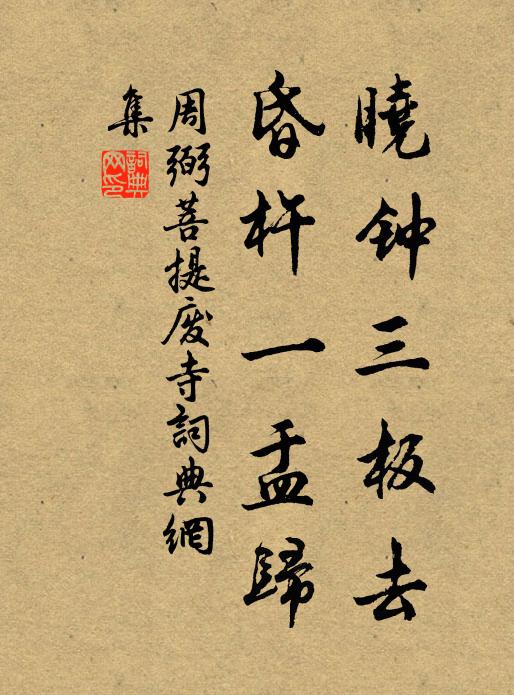 曉钟三板去
昏杵一盂歸
周弼菩提废寺詞典網
集
詞典网印